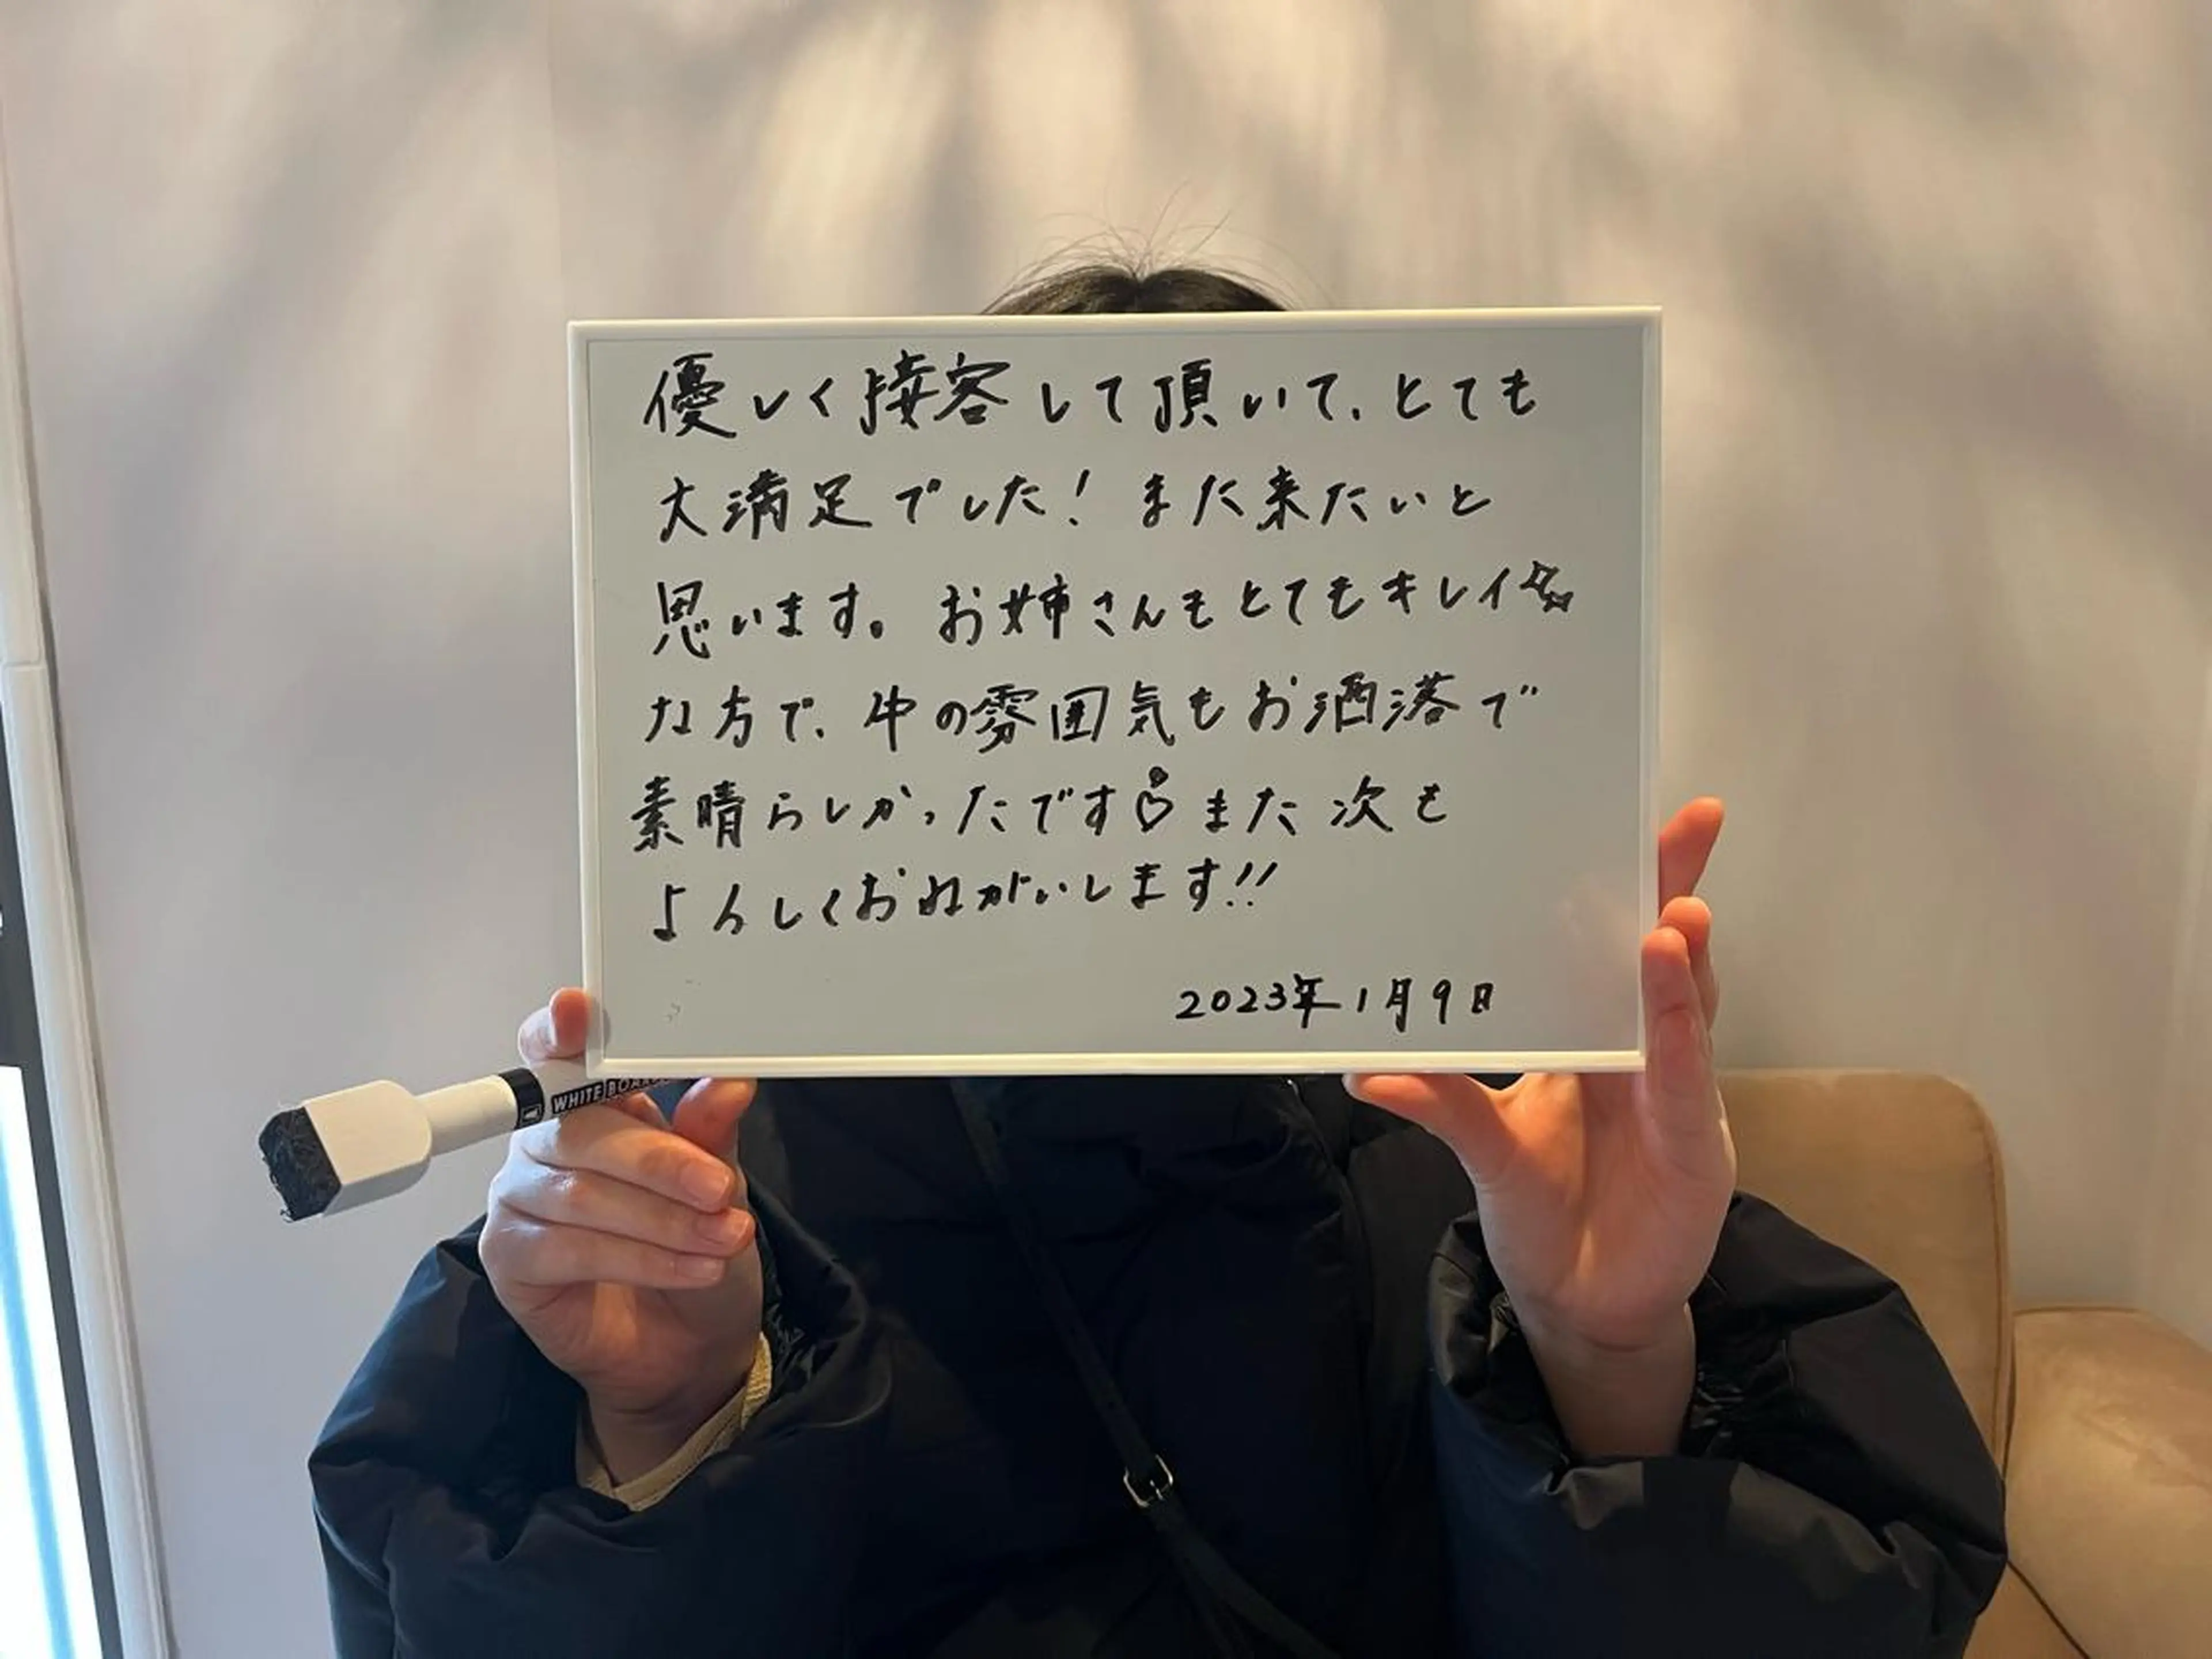 優しく接客して頂いて、とても
大満足でした！また来たいと
思います。お姉さんもとてもキレイ
な方で、中の雰囲気もお洒落で
素晴らしかったです また次も
よろしくおねがいします!!
2023年1月9日
WHITE BOARD